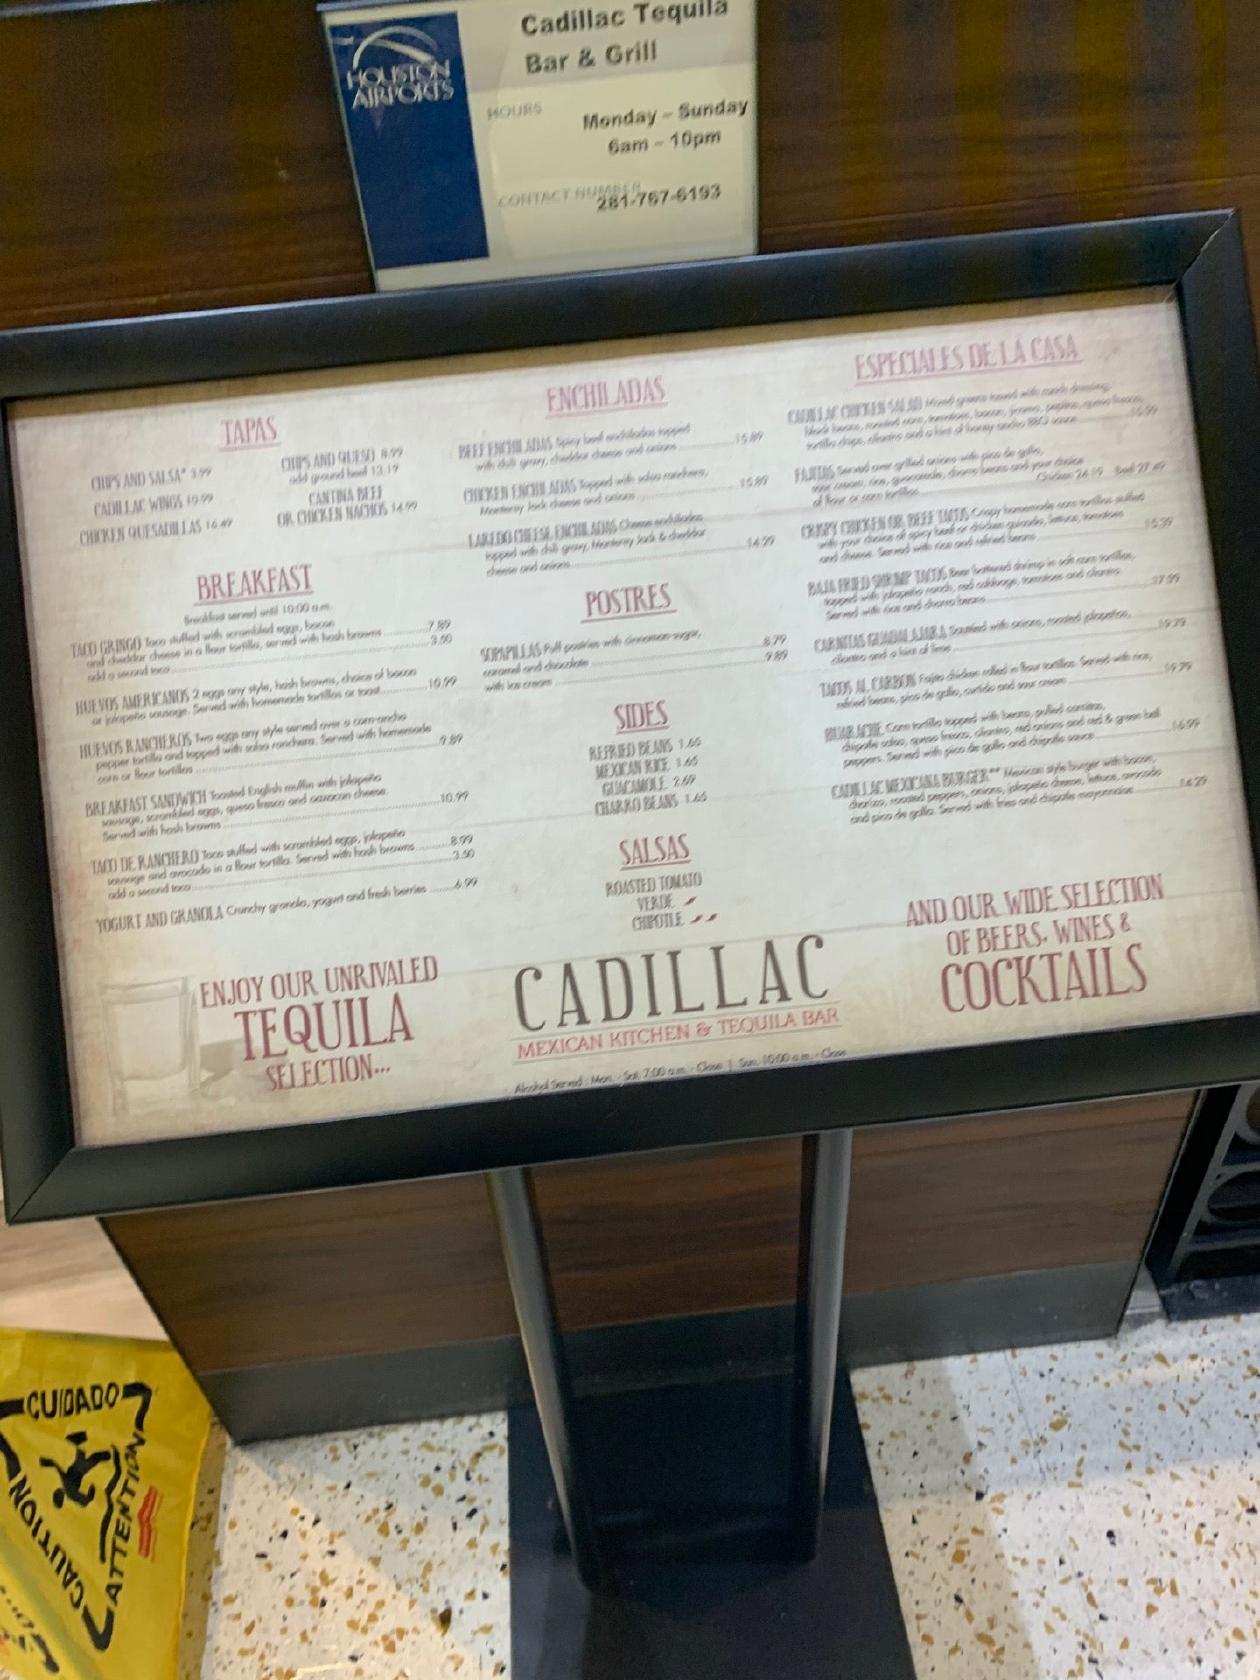 Cadillac Tequila
Bar & Grill
HOUSTON
AIRPORTS
HOURS
Monday - Sunday
6am - 10pm
CONTACT NUMBER
281-767-6193
TAPAS
CHIPS AND SALSA* 3.99
CADILLAC WINGS 10.99
CHICKEN QUESADILLAS 16.49
CHIPS AND QUESO 8.99
add ground beef 13.19
CANTINA BEEF
OR CHICKEN NACHOS 14.99
BREAKFAST
Breakfast served until 10:00 a.m.
TACO GRINGO Taco stuffed with scrambled eggs, bacon
and cheddar cheese in a flour tortilla, served with hash browns 7.89
add a second taco 3.50
HUEVOS AMERICANOS 2 eggs any style, hash browns, choice of bacon
or jalapeño sausage. Served with homemade tortillas or toast 10.99
HUEVOS RANCHEROS Two eggs any style served over a corn-ancho
pepper tortilla and topped with salsa ranchera. Served with homemade
corn or flour tortillas 9.89
BREAKFAST SANDWICH Toasted English muffin with jalapeño
sausage, scrambled eggs, queso fresco and oaxacan cheese.
Served with hash browns 10.99
TACO DE RANCHERO Taco stuffed with scrambled eggs, jalapeño
sausage and avocado in a flour tortilla. Served with hash browns 8.99
add a second taco 3.50
YOGURT AND GRANOLA Crunchy granola, yogurt and fresh berries 6.99
ENCHILADAS
BEEF ENCHILADAS Spicy beef enchiladas topped
with chili gravy, cheddar cheese and onions 15.89
CHICKEN ENCHILADAS Topped with salsa ranchera,
Monterey Jack cheese and onions 15.89
LAREDO CHEESE ENCHILADAS Cheese enchiladas
topped with chili gravy, Monterey Jack & cheddar
cheese and onions 14.29
POSTRES
SOPAPILLAS Puff pastries with cinnamon-sugar,
caramel and chocolate 8.79
with ice cream 9.89
SIDES
REFRIED BEANS 1.65
MEXICAN RICE 1.65
GUACAMOLE 2.69
CHARRO BEANS 1.65
SALSAS
ROASTED TOMATO
VERDE
CHIPOTLE
ESPECIALES DE LA CASA
CADILLAC CHICKEN SALAD Mixed greens tossed with ranch dressing,
black beans, roasted corn, tomatoes, bacon, jicama, pepitas, queso fresco,
tortilla strips, cilantro and a hint of honey ancho BBQ sauce
FAJITAS Served over grilled onions with pico de gallo,
sour cream, rice, guacamole, charro beans and your choice
of flour or corn tortillas Chicken Beef
CRISPY CHICKEN OR BEEF TACOS Crispy homemade corn tortillas stuffed
with your choice of spicy beef or chicken guisado, lettuce, tomatoes
and cheese. Served with rice and refried beans 15.39
BAJA FRIED SHRIMP TACOS Beer battered shrimp in soft corn tortillas,
topped with jalapeño ranch, red cabbage, tomatoes and cilantro.
Served with rice and charro beans 17.99
CARNITAS GUADALAJARA Sautéed with onions, roasted jalapeños,
cilantro and a hint of lime 19.79
TACOS AL CARBON Fajita chicken rolled in flour tortillas. Served with rice,
refried beans, pico de gallo, curtido and sour cream 19.79
HUARACHE Corn tortilla topped with beans, pulled carnitas,
chipotle salsa, queso fresco, cilantro, red onions and red & green bell
peppers. Served with pico de gallo and chipotle sauce 16.99
CADILLAC MEXICANA BURGER** Mexican style burger with bacon,
chorizo, roasted peppers, onions, jalapeño cheese, lettuce, avocado
and pico de gallo. Served with fries and chipotle mayonnaise 14.29
ENJOY OUR UNRIVALED
TEQUILA
SELECTION...
CADILLAC
MEXICAN KITCHEN & TEQUILA BAR
AND OUR WIDE SELECTION
OF BEERS, WINES &
COCKTAILS
Alcohol Served : Mon. - Sat. 7:00 a.m. - Close | Sun. 10:00 a.m. - Close
CUIDADO
CAUTION
ATTENTION